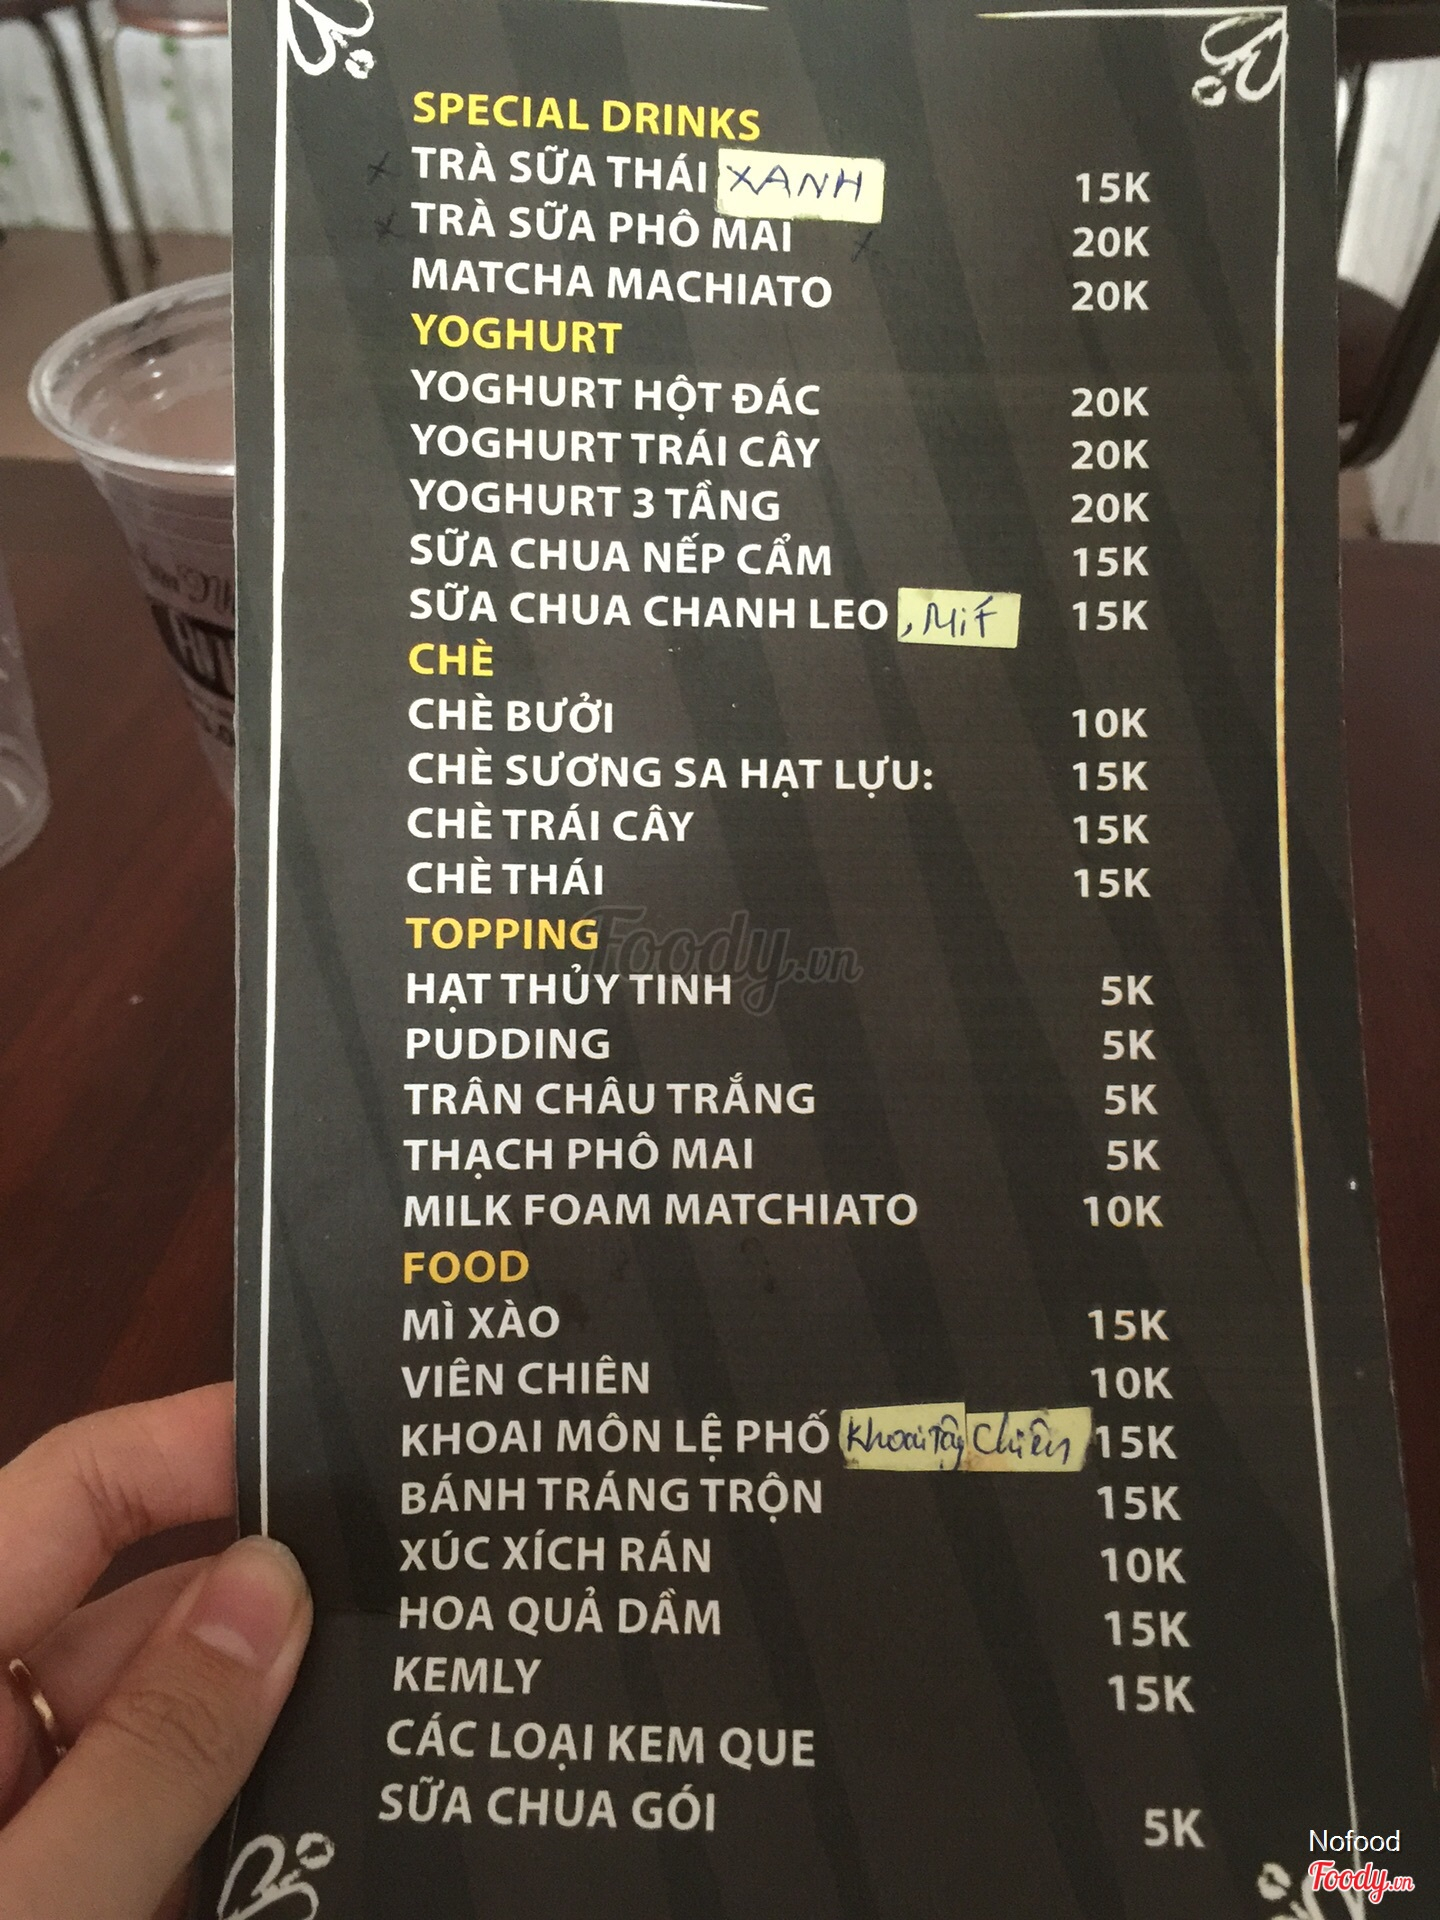 SPECIAL DRINKS
TRÀ SỮA THÁI XANH 15K
TRÀ SỮA PHÔ MAI 20K
MATCHA MACHIATO 20K
YOGHURT
YOGHURT HỘT ĐÁC 20K
YOGHURT TRÁI CÂY 20K
YOGHURT 3 TẦNG 20K
SỮA CHUA NẾP CẨM 15K
SỮA CHUA CHANH LEO , MiT 15K
CHÈ
CHÈ BƯỞI 10K
CHÈ SƯƠNG SA HẠT LỰU: 15K
CHÈ TRÁI CÂY 15K
CHÈ THÁI 15K
TOPPING
HẠT THỦY TINH 5K
PUDDING 5K
TRÂN CHÂU TRẮNG 5K
THẠCH PHÔ MAI 5K
MILK FOAM MATCHIATO 10K
FOOD
MÌ XÀO 15K
VIÊN CHIÊN 10K
KHOAI MÔN LỆ PHỐ Khoai Tây Chiên 15K
BÁNH TRÁNG TRỘN 15K
XÚC XÍCH RÁN 10K
HOA QUẢ DẦM 15K
KEMLY 15K
CÁC LOẠI KEM QUE
SỮA CHUA GÓI 5K
Foody.vn
Nofood
Foody.vn